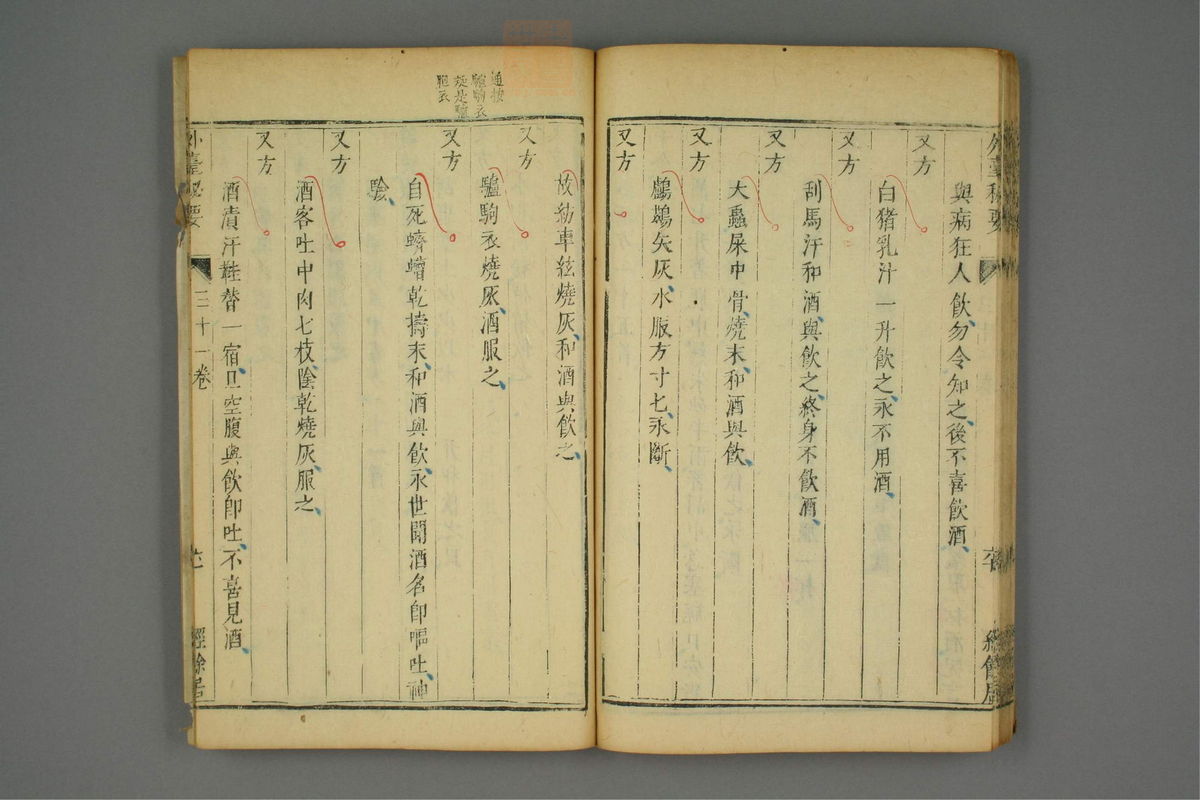 外臺秘要
與病狂人飲勿令知之後不喜飲酒
又方
白猪乳汁一升飲之永不用酒
又方
刮馬汗和酒與飲之終身不飲酒
又方
大蟲屎中骨燒末和酒與飲
又方
鸕鷀矢灰水服方寸匕永斷
又方
故紡車絃燒灰和酒與飲之
又方
驢駒衣燒灰酒服之
又方
自死蠐螬乾擣末和酒與飲永世聞酒名即嘔吐神
驗
又方
酒客吐中肉七枚陰乾燒灰服之
又方
酒漬汗鞋替一宿旦空腹與飲即吐不喜見酒
外臺秘要
三十一卷
經餘居
衍按
驢駒衣
疑是驢
胞衣